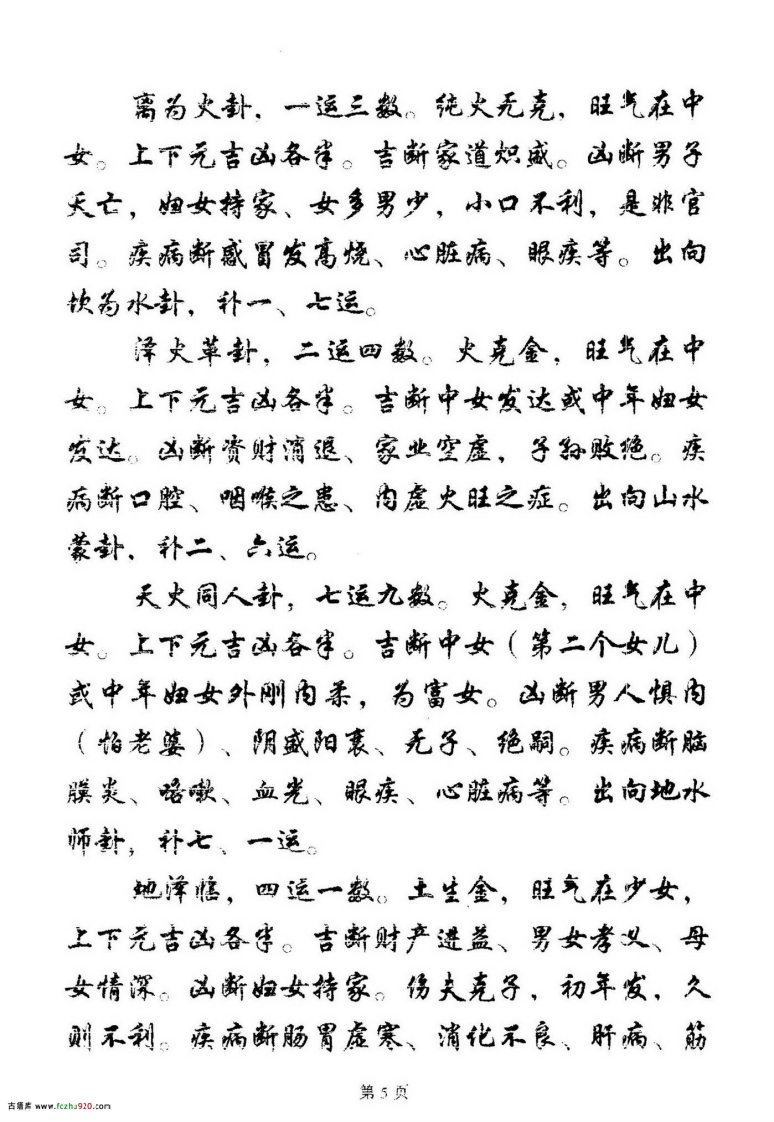 离为火卦，一运三数。纯火无克，旺气在中
女。上下元吉凶各半。吉断家道炽盛。凶断男子
夭亡，妇女持家、女多男少，小口不利，是非官
司。疾病断感冒发高烧、心脏病、眼疾等。出向
坎为水卦，补一、七运。
泽火革卦，二运四数。火克金，旺气在中
女。上下元吉凶各半。吉断中女发达或中年妇女
发达。凶断资财消退、家业空虚，子孙败绝。疾
病断口腔、咽喉之患、内虚火旺之症。出向山水
蒙卦，补二、六运。
天火同人卦，七运九数。火克金，旺气在中
女。上下元吉凶各半。吉断中女（第二个女儿）
或中年妇女外刚内柔，为富女。凶断男人惧内
（怕老婆）、阴盛阳衰、无子、绝嗣。疾病断脑
膜炎、咯嗽、血光、眼疾、心脏病等。出向地水
师卦，补七、一运。
地泽临，四运一数。土生金，旺气在少女，
上下元吉凶各半。吉断财产进益、男女孝义、母
女情深。凶断妇女持家。伤夫克子，初年发，久
则不利。疾病断肠胃虚寒、消化不良、肝病、筋
第 5 页
古籍库 www.fczhu920.com